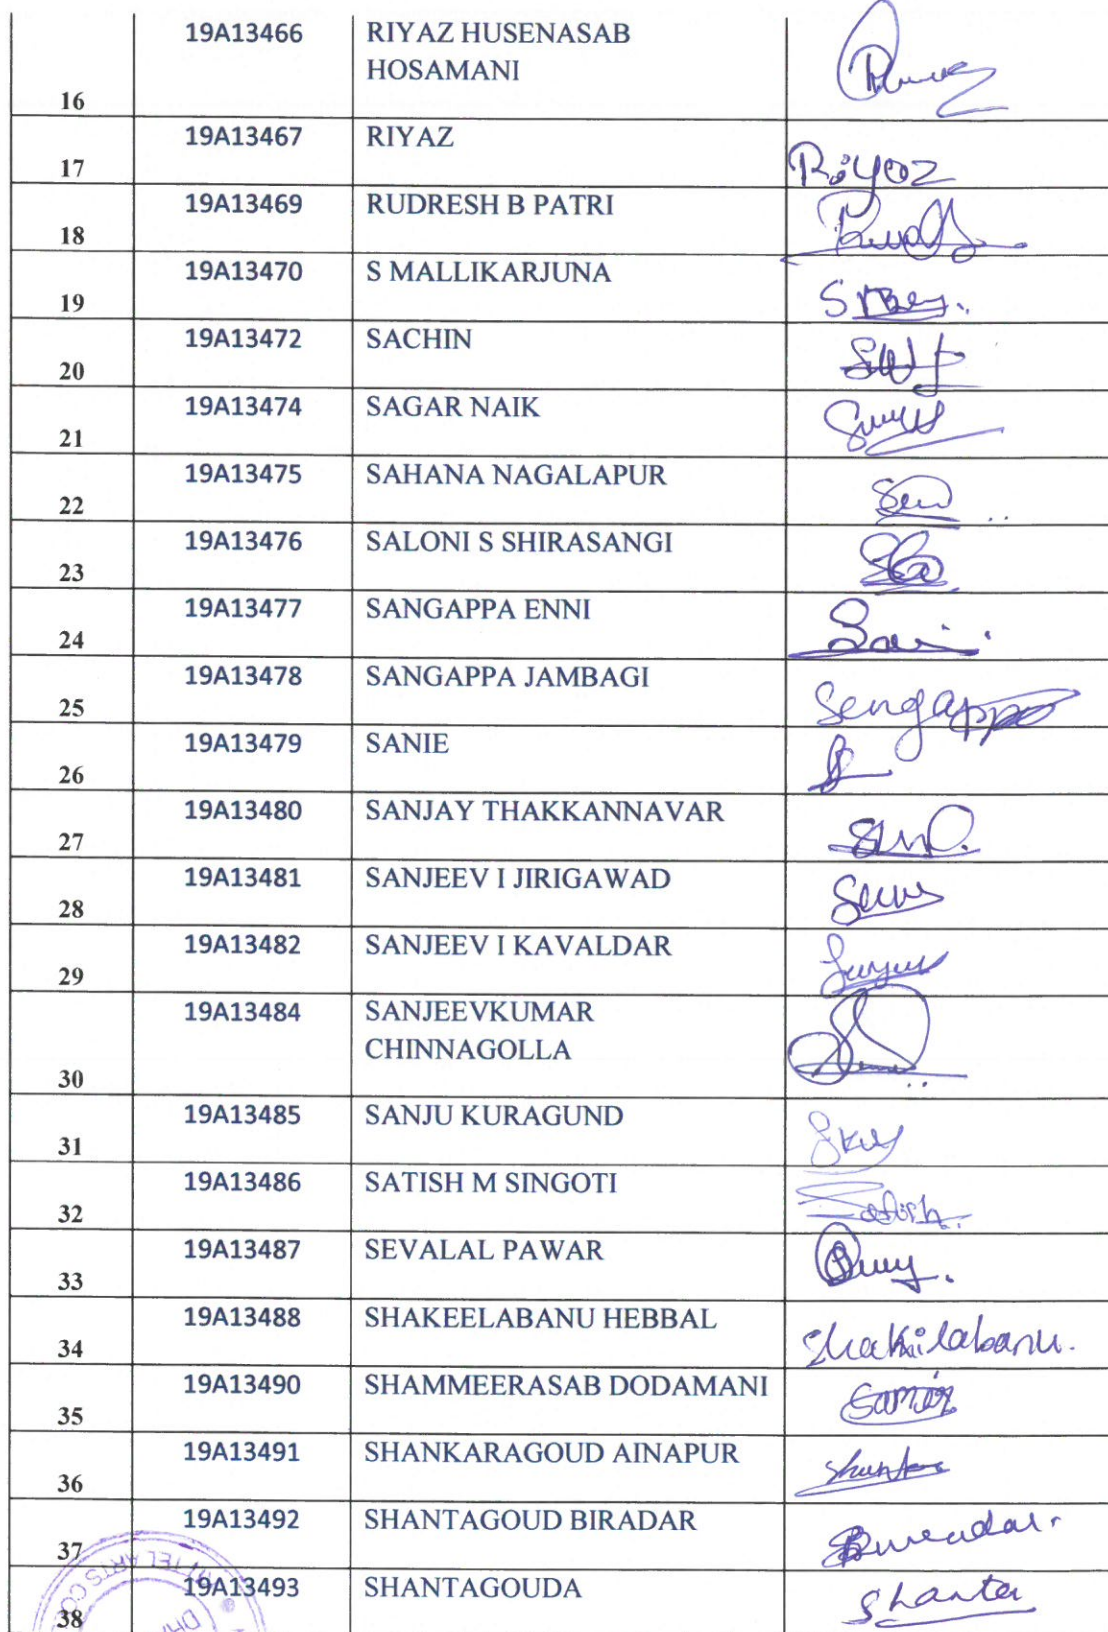 19A13466 RIYAZ HUSENASAB
HOSAMANI
16
19A13467 RIYAZ
17 Riyaz
19A13469 RUDRESH B PATRI
18
19A13470 S MALLIKARJUNA
19
19A13472 SACHIN
20
19A13474 SAGAR NAIK
21
19A13475 SAHANA NAGALAPUR
22
19A13476 SALONI S SHIRASANGI
23
19A13477 SANGAPPA ENNI
24
19A13478 SANGAPPA JAMBAGI
25 Sengappa
19A13479 SANIE
26
19A13480 SANJAY THAKKANNAVAR
27
19A13481 SANJEEV I JIRIGAWAD
28
19A13482 SANJEEV I KAVALDAR
29
19A13484 SANJEEVKUMAR
CHINNAGOLLA
30
19A13485 SANJU KURAGUND
31
19A13486 SATISH M SINGOTI
32 Satish.
19A13487 SEVALAL PAWAR
33
19A13488 SHAKEELABANU HEBBAL
34 Shakilabanu.
19A13490 SHAMMEERASAB DODAMANI
35
19A13491 SHANKARAGOUD AINAPUR
36
19A13492 SHANTAGOUD BIRADAR
37
19A13493 SHANTAGOUDA
38 Shanta
TEL ARTS CO